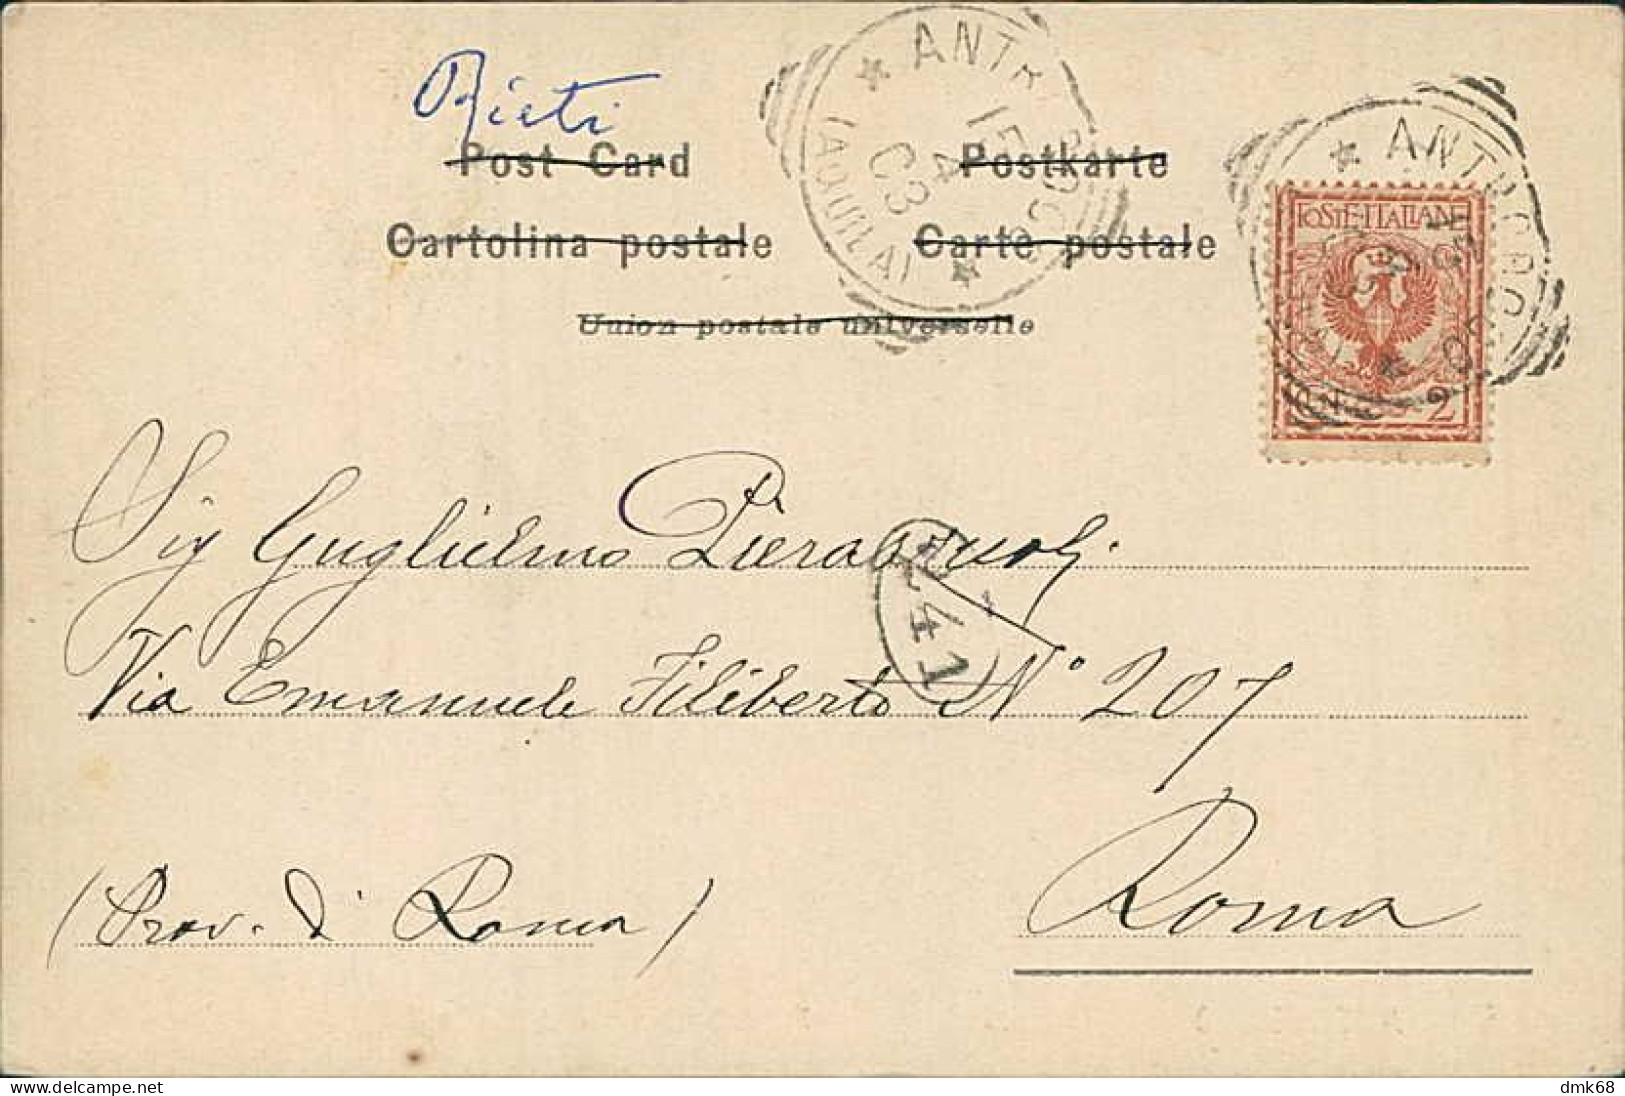 Rieti
Post Card Postkarte
Cartolina postale Carte postale
Union postale universelle
ANTRODOCO
15 4 03
(AQUILA)
ANTRODOCO
POSTE·ITALIANE
2
Sig Guglielmo
241
Via Emanuele Filiberto N° 207
Roma
(Prov. di Roma)
dmk68